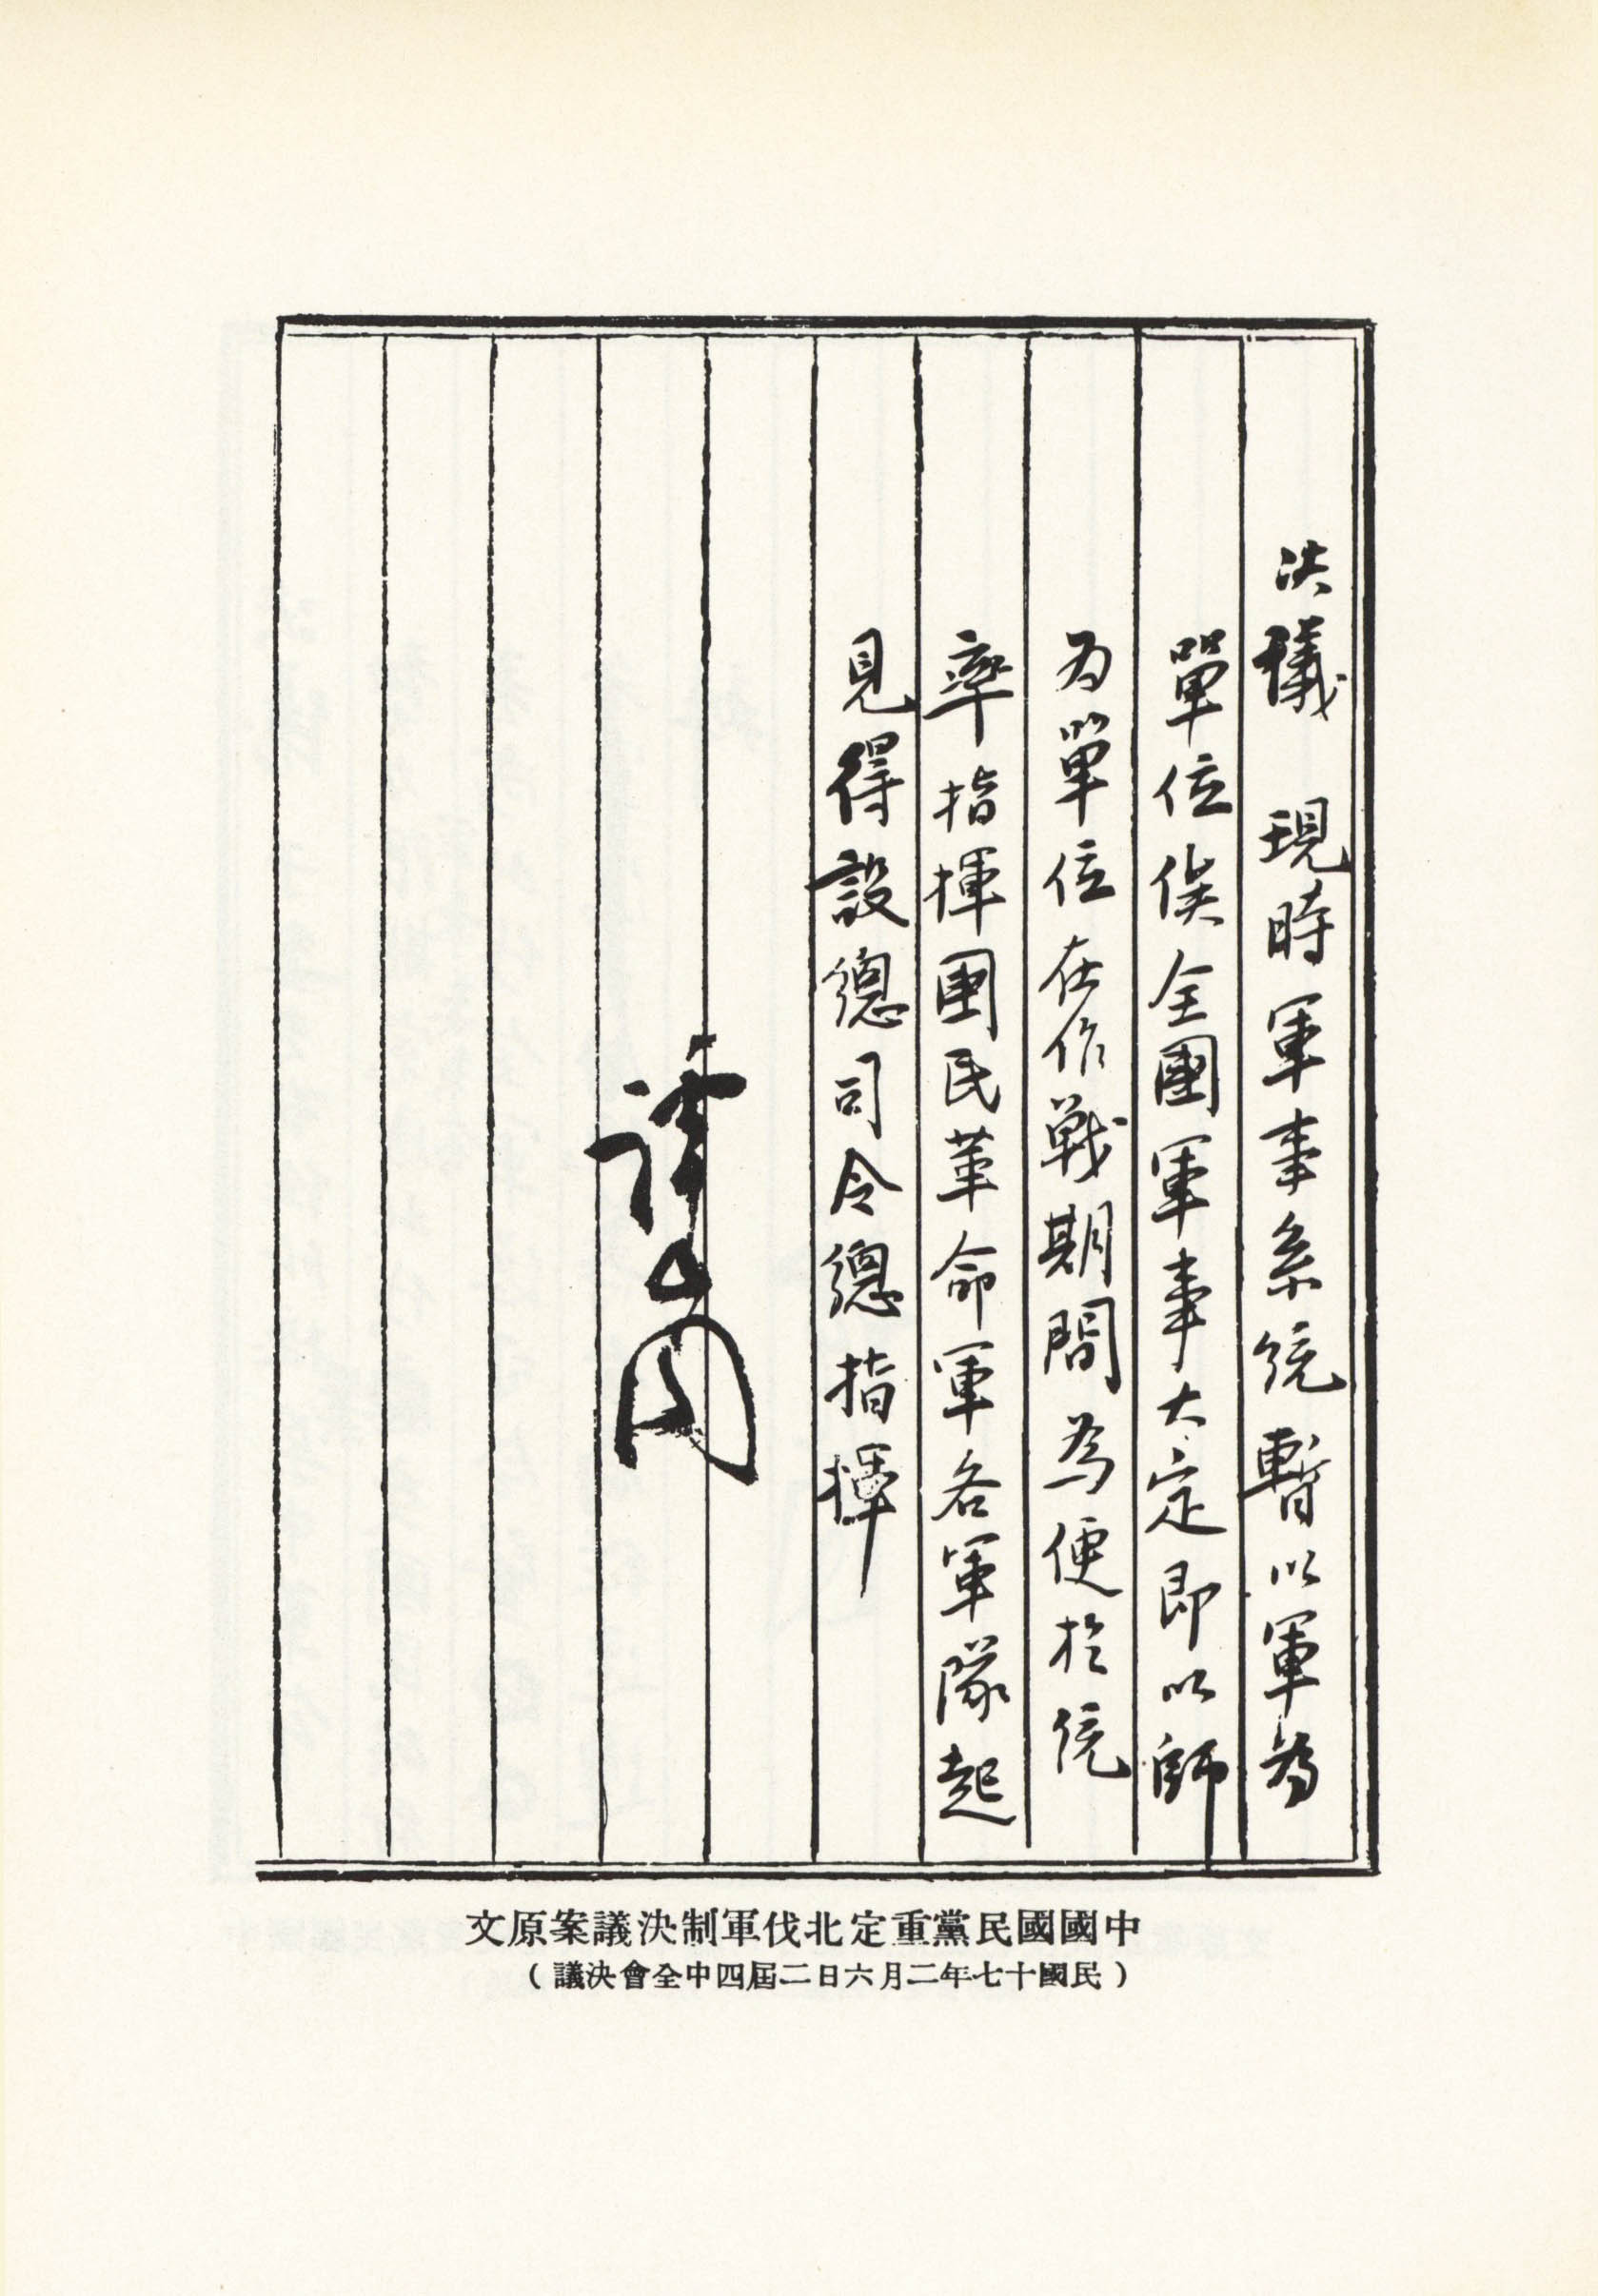 決議　現時軍事系統暫以軍為
單位俟全國軍事大定即以師
为單位在作戰期間為便於統
率指揮國民革命軍各軍隊起
見得設總司令總指揮
中國國民黨重定北伐軍制決議案原文
（民國十七年二月六日二屆四中全會決議）